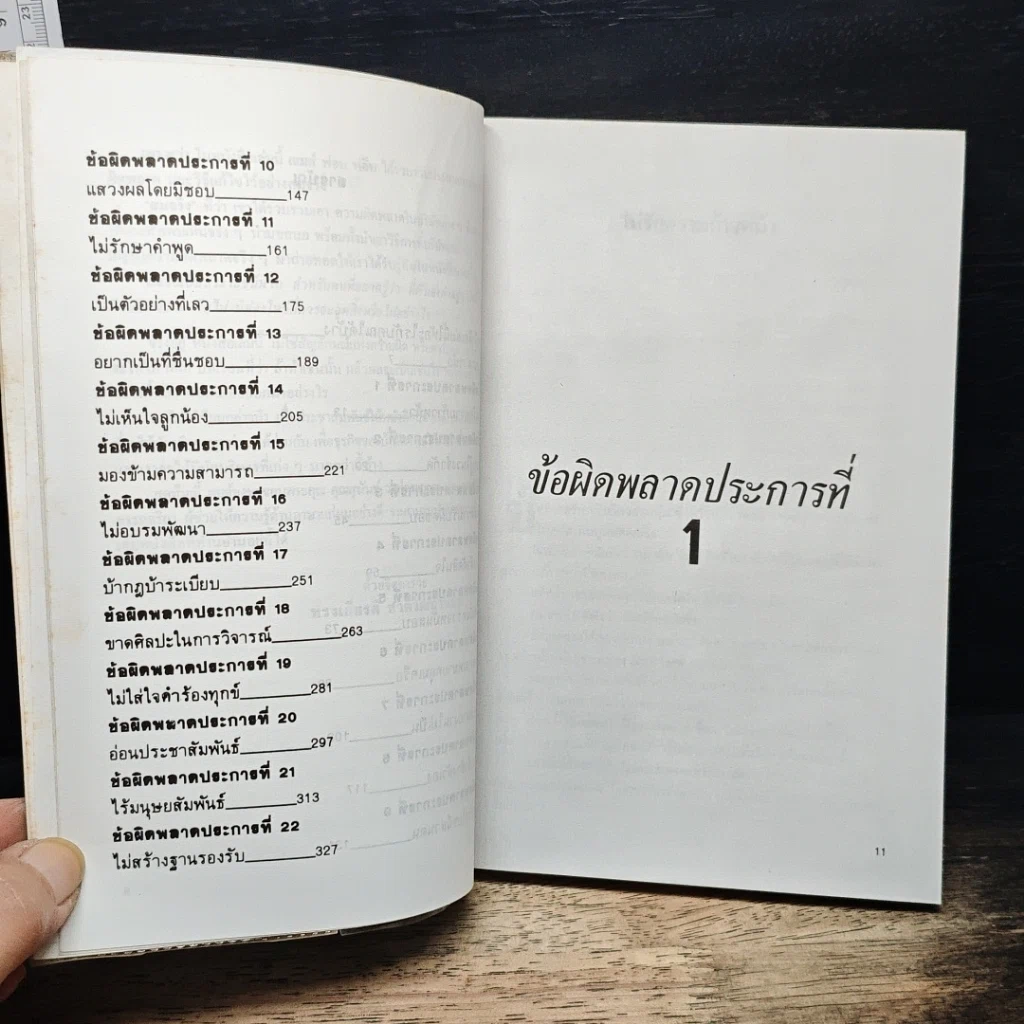 ข้อผิดพลาดประการที่ 10
แสวงผลโดยมิชอบ________147
ข้อผิดพลาดประการที่ 11
ไม่รักษาคำพูด________161
ข้อผิดพลาดประการที่ 12
เป็นตัวอย่างที่เลว________175
ข้อผิดพลาดประการที่ 13
อยากเป็นที่ชื่นชอบ________189
ข้อผิดพลาดประการที่ 14
ไม่เห็นใจลูกน้อง________205
ข้อผิดพลาดประการที่ 15
มองข้ามความสามารถ________221
ข้อผิดพลาดประการที่ 16
ไม่อบรมพัฒนา________237
ข้อผิดพลาดประการที่ 17
บ้ากฎบ้าระเบียบ________251
ข้อผิดพลาดประการที่ 18
ขาดศิลปะในการวิจารณ์________263
ข้อผิดพลาดประการที่ 19
ไม่ใส่ใจคำร้องทุกข์________281
ข้อผิดพลาดประการที่ 20
อ่อนประชาสัมพันธ์________297
ข้อผิดพลาดประการที่ 21
ไร้มนุษยสัมพันธ์________313
ข้อผิดพลาดประการที่ 22
ไม่สร้างฐานรองรับ________327
ข้อผิดพลาดประการที่
1
11